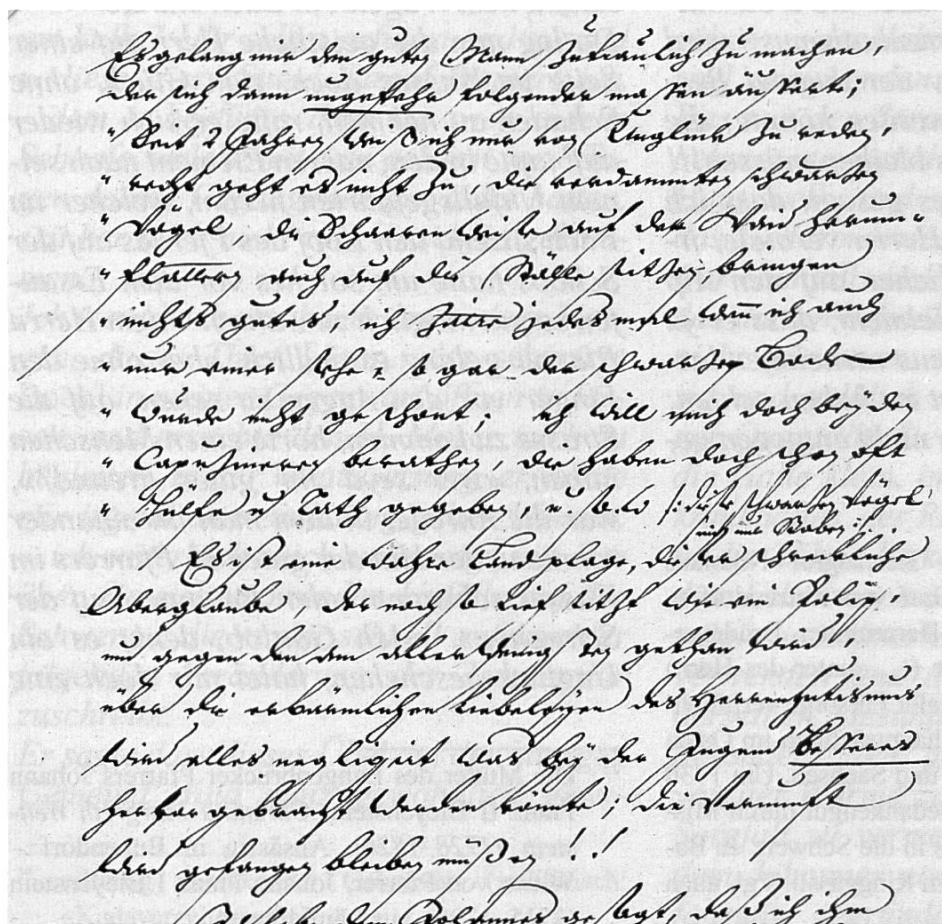 Es gelang mir den guten Mann zutraulich zu machen,
der sich dann ungefehr folgender masen äusserte;
" Seit 2 Jahren weiß ich nur von Unglük zu reden,
" recht geht es nicht zu, die verdammten schwarzen
" Vögel, die Schaaren weise auf dem Haus herum-
" flattern auch auf die Ställe sitzen bringen
" nichts gutes, ich zittre jedesmal wenn ich auch
" nur einer sehe = so gar der schwarzen
" wurde nicht geschont; ich will mich doch bey den
" Capuzineren berathen, die haben doch schon oft
" Hülfe u Rath gegeben, u. s. w. /: diese schwarzen Vögel
sind nur Raben :/
Es ist eine wahre Landplage, dieser schrekliche
Aberglaube, der noch so tief sitzt wie ein Polip,
und gegen den am allerwenigsten gethan wird,
über die erbarmlichen des Herrengutismus
wird alles negligirt was bey der Jugend Besseres
hervorgebracht werden könnte; die Vernunft
gefangen bleiben müßen !!
gesagt, daß ich ihm